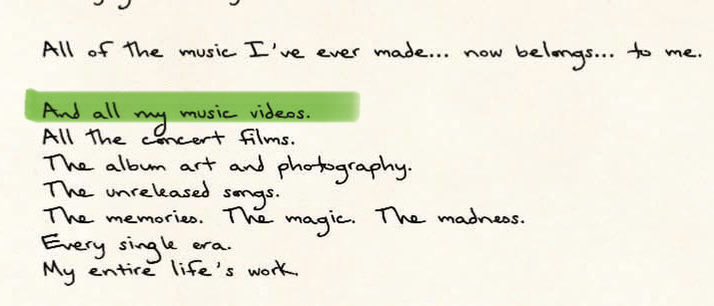 All of the music I've ever made... now belongs... to me.
And all my music videos.
All the concert films.
The album art and photography.
The unreleased songs.
The memories. The magic. The madness.
Every single era.
My entire life's work.